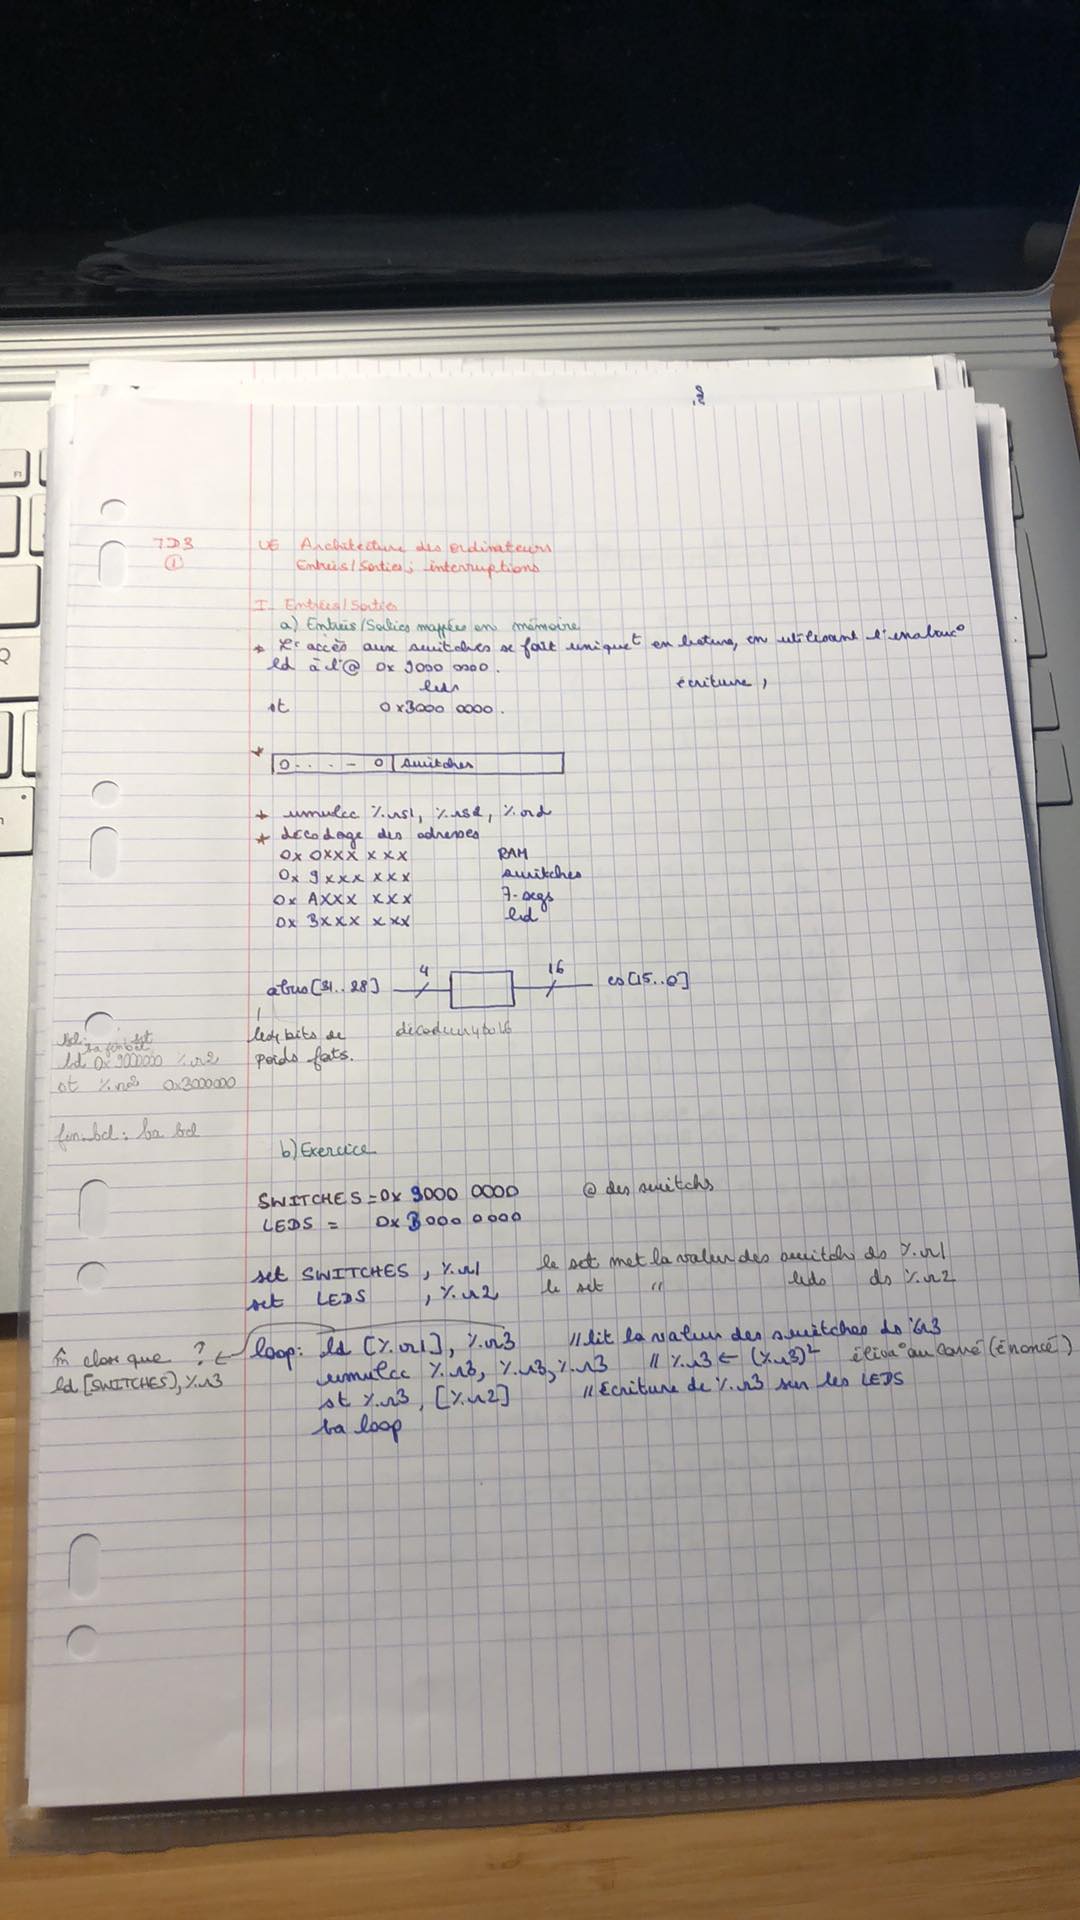 TD3 UE Architecture des ordinateurs
① Entrées/Sorties ; interruptions
I. Entrées/Sorties
a) Entrées/Sorties mappées en mémoire
* L'accès aux switches se fait uniquet en lecture, en utilisant l'
ld à l'@ 0x 9000 0000.
écriture,
st 0x3000 0000.
* 0 . . . - 0 | switches
* umulcc %rs1, %rs2, %rd
* décodage des adresses
0x 0XXX XXX RAM
0x 9XXX XXX switches
0x AXXX XXX 7-segs
0x BXXX XXX led
abus[31..28] 4 16 cs[15..0]
les bits de décodeur 4 to 16
poids forts.
ld 0x9000000 %r2
st %r2 0x3000000
fin_bcl: ba bcl
b) Exercice
SWITCHES = 0x 9000 0000 @ des switchs
LEDS = 0x B000 0000
set SWITCHES, %r1 le set met la valeur des switch ds %r1
set LEDS , %r2 le set " leds ds %r2
loop: ld [%r1], %r3 // lit la valeur des switches ds %r3
m̂ chose que ?
ld [SWITCHES], %r3
umulcc %r3, %r3, %r3 // %r3 ← (%r3)² au carré (énoncé)
st %r3, [%r2] // Ecriture de %r3 sur les LEDS
ba loop